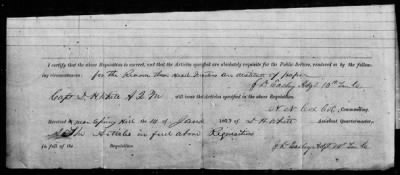 I certify that the above Requisition is correct, and that the Articles specified are absolutely requisite for the Public Service, rendered so by the follow-
ing circumstances: for the Reason that Head Quarters are destitute of paper
J. D. Easley Adjt 10th Ten Ca
Capt D. H. White A Q M will issue the Articles specified in the above Requisition.
N. N. Cox Col, Commanding.
Received near Spring Hill the 10 of 1863 of D H White Assistant Quartermaster,
Articles in full above Requisition
in full of the Requisition.
J D Easley Adjt 10th Ten Ca